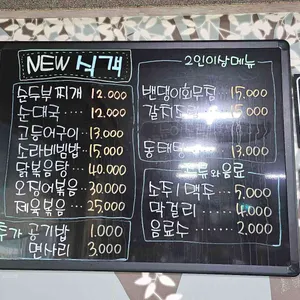 NEW 식객
순두부찌개 12.000
순대국 12.000
고등어구이 13.000
소라비빔밥 15.000
닭볶음탕 40.000
오징어볶음 30.000
제육볶음 25.000
추가 공기밥 1.000
면사리 3.000
2인이상메뉴
밴댕이회무침 15,000
갈치조림 15,000
동태탕 13,000
주류와 음료
소주/맥주 5,000
막걸리 4,000
음료수 2,000